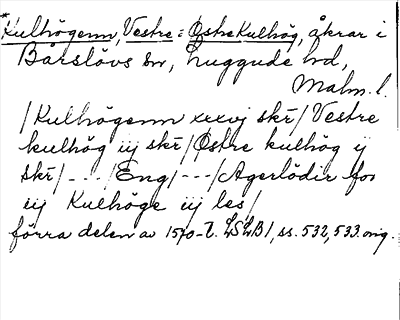 *Kulhögenn, Vestre = Østre Kulhög, åkrar i
Bårslövs sn, Luggude hd,
Malm. l.
/Kulhögenn xxxvj skr/ Vestre
kulhög iij skr/Østre kulhög ij
skr/---/Eng/---/Agerlödir for
iij Kulhöge iij les/
förra delen av 1570-t. LSLB1, ss. 532, 533. orig.